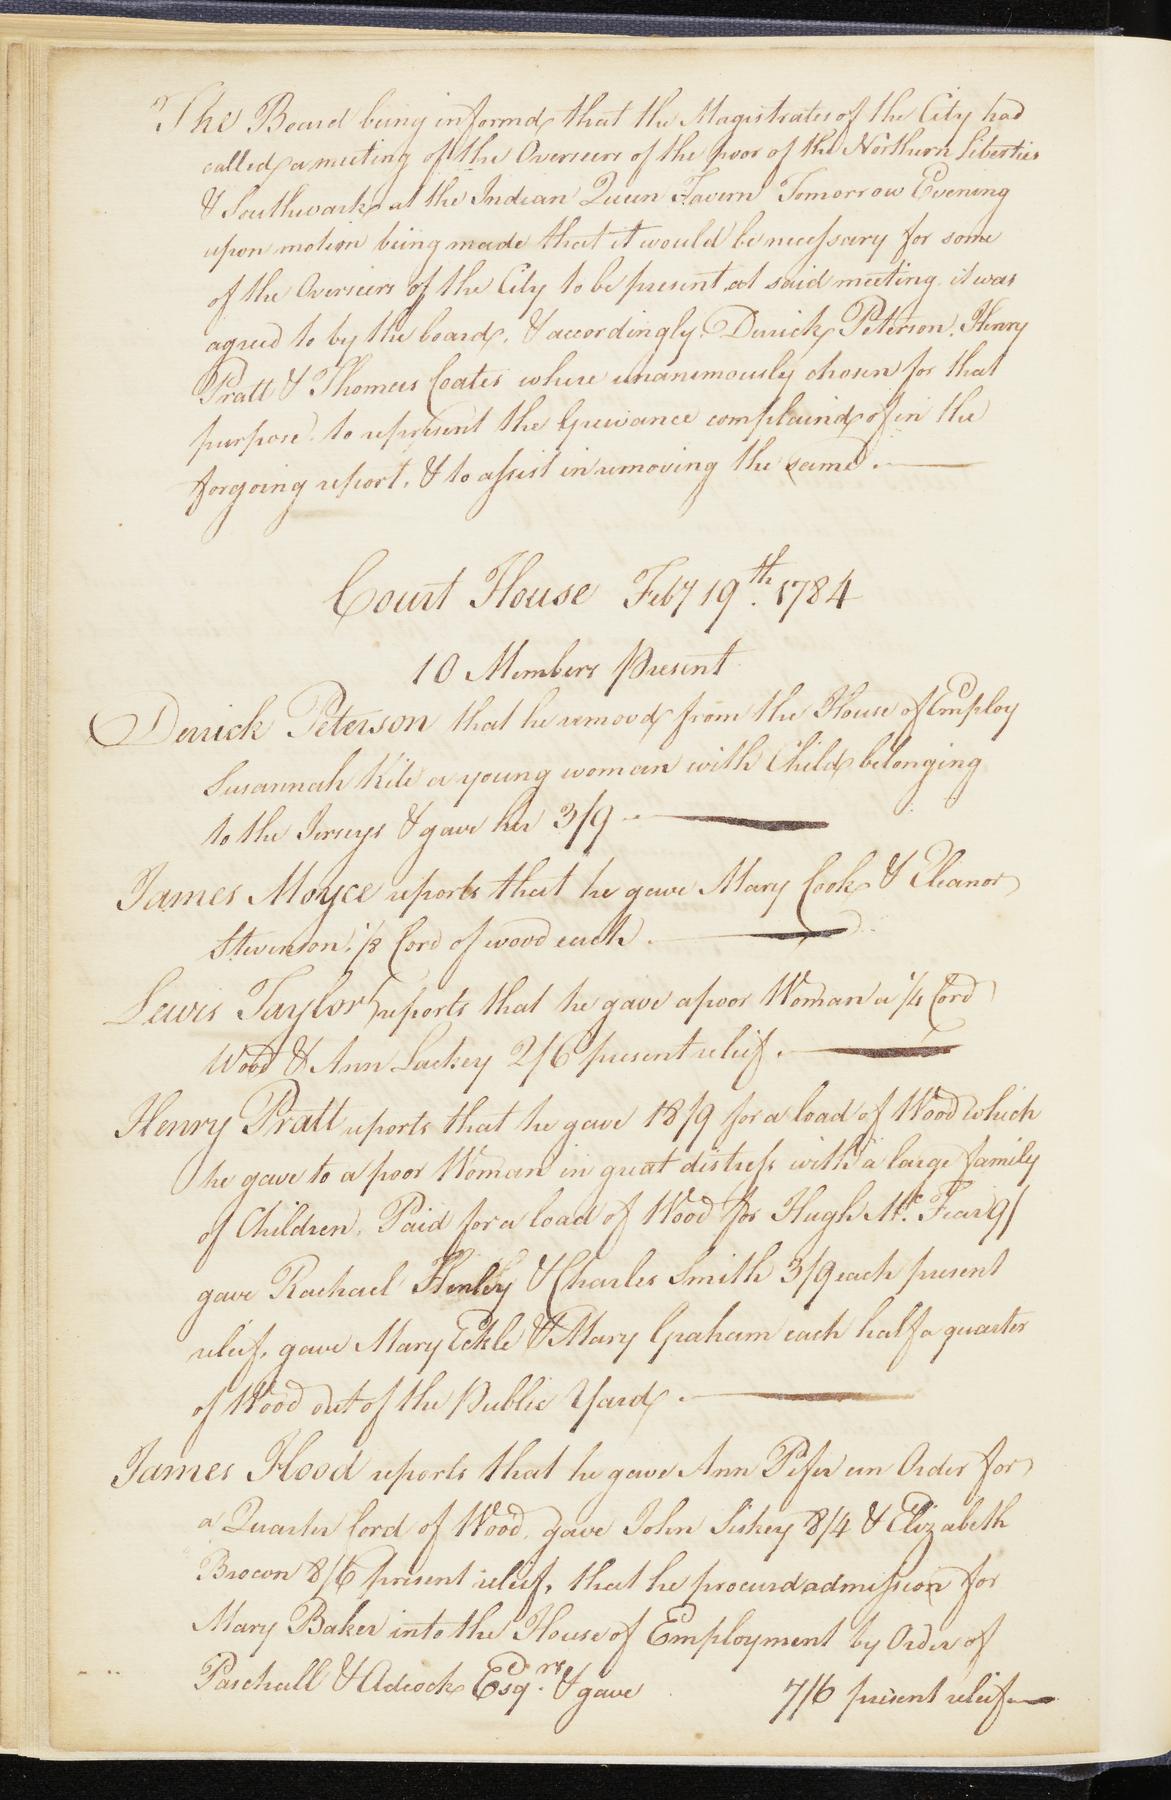 The Board being informd that the Magistrates of the City had
called a meeting of the Overseers of the poor of the Northern Liberties
& Southwark at the Indian Queen Tavern Tomorrow Evening
upon motion being made that it would be necessary for some
of the Overseers of the City to be present at said meeting it was
agreed to by the board, & accordingly Derrick Peterson, Henry
Pratt & Thomas Coates where unanimously chosen for that
purpose to represent the Greivance complaind of in the
forgoing report, & to assist in removing the same.
Court House Feby 19th. 1784
10 Members Present
Derrick Peterson that he removd from the House of Employ
Susannah Kile a young woman with Child belonging
to the Jerseys & gave her 3/9
James Moyce reports that he gave Mary Cook & Eleanor
Stevenson, 1/8 Cord of wood each.
Lewis Taylor reports that he gave a poor Woman a 1/4 Cord
Wood & Ann Lackey 2/6 present releif.
Henry Pratt reports that he gave 18/9 for a load of Wood which
he gave to a poor Woman in great distress with a large family
of Children, Paid for a load of Wood for Hugh Mc. Fear 9/
gave Rachael Henley & Charles Smith 3/9 each present
releif, gave Mary Eckle & Mary Graham each half a quarter
of Wood out of the Public Yard.
James Hood reports that he gave Ann Pifer an Order for
a Quarter Cord of Wood, gave John 8/4 & Elizabeth
Brown 8/6 present releif, that he procurd admission for
Mary Baker into the House of Employment by Order of
Paschall & Adcock Esqrs. & gave 7/6 present releif